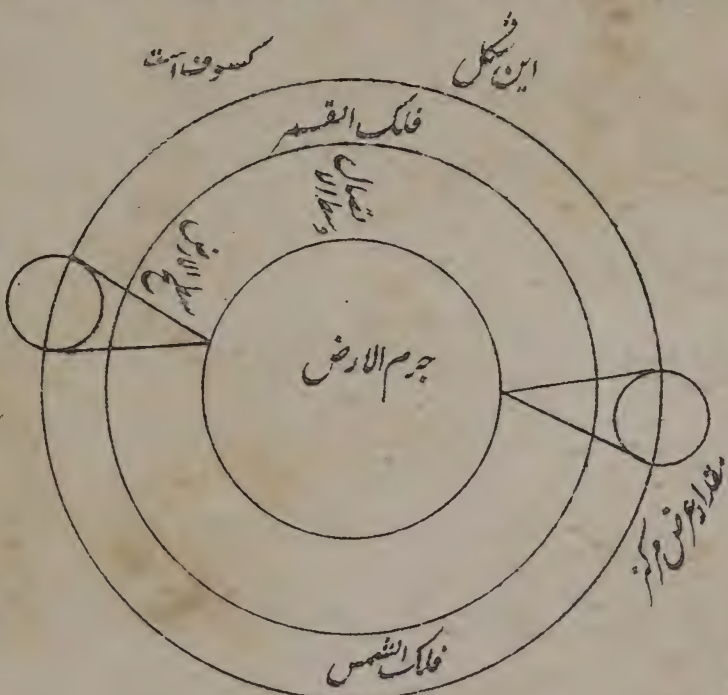 این شکل
کسوف است
فلک القمر
وسط الا
تصال
سطح الارض
جرم الارض
مقدار عرض مرکز
فلک الشمس